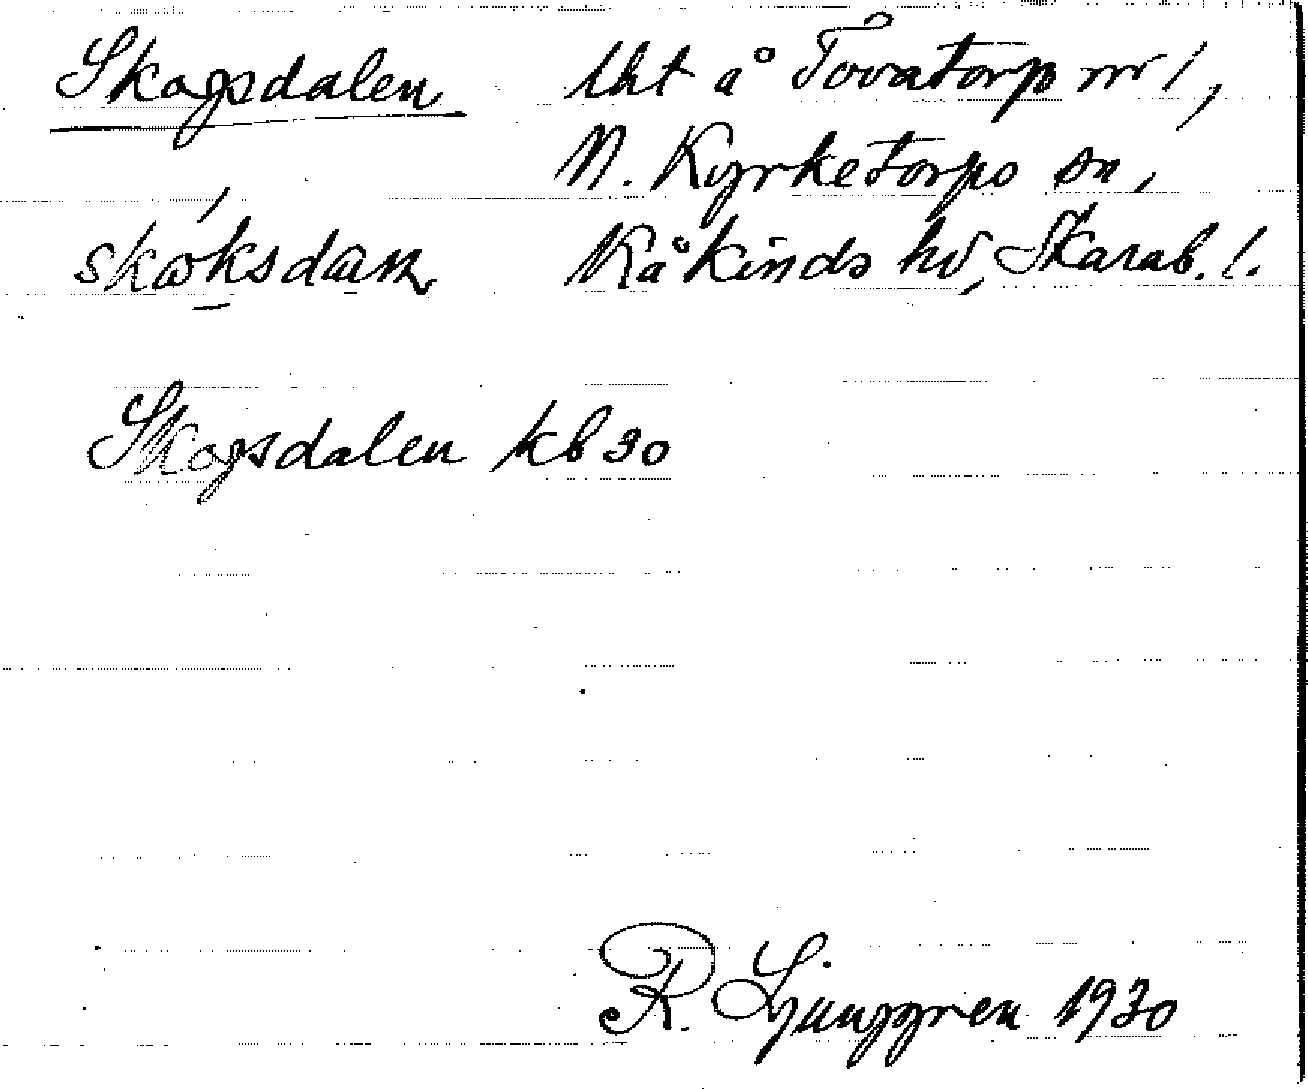 Skogsdalen lht å Tovatorp nr 1,
N. Kyrketorps sn,
Kåkinds hd, Skarab. l.
Skogsdalen kb 30
R. Ljunggren 1930